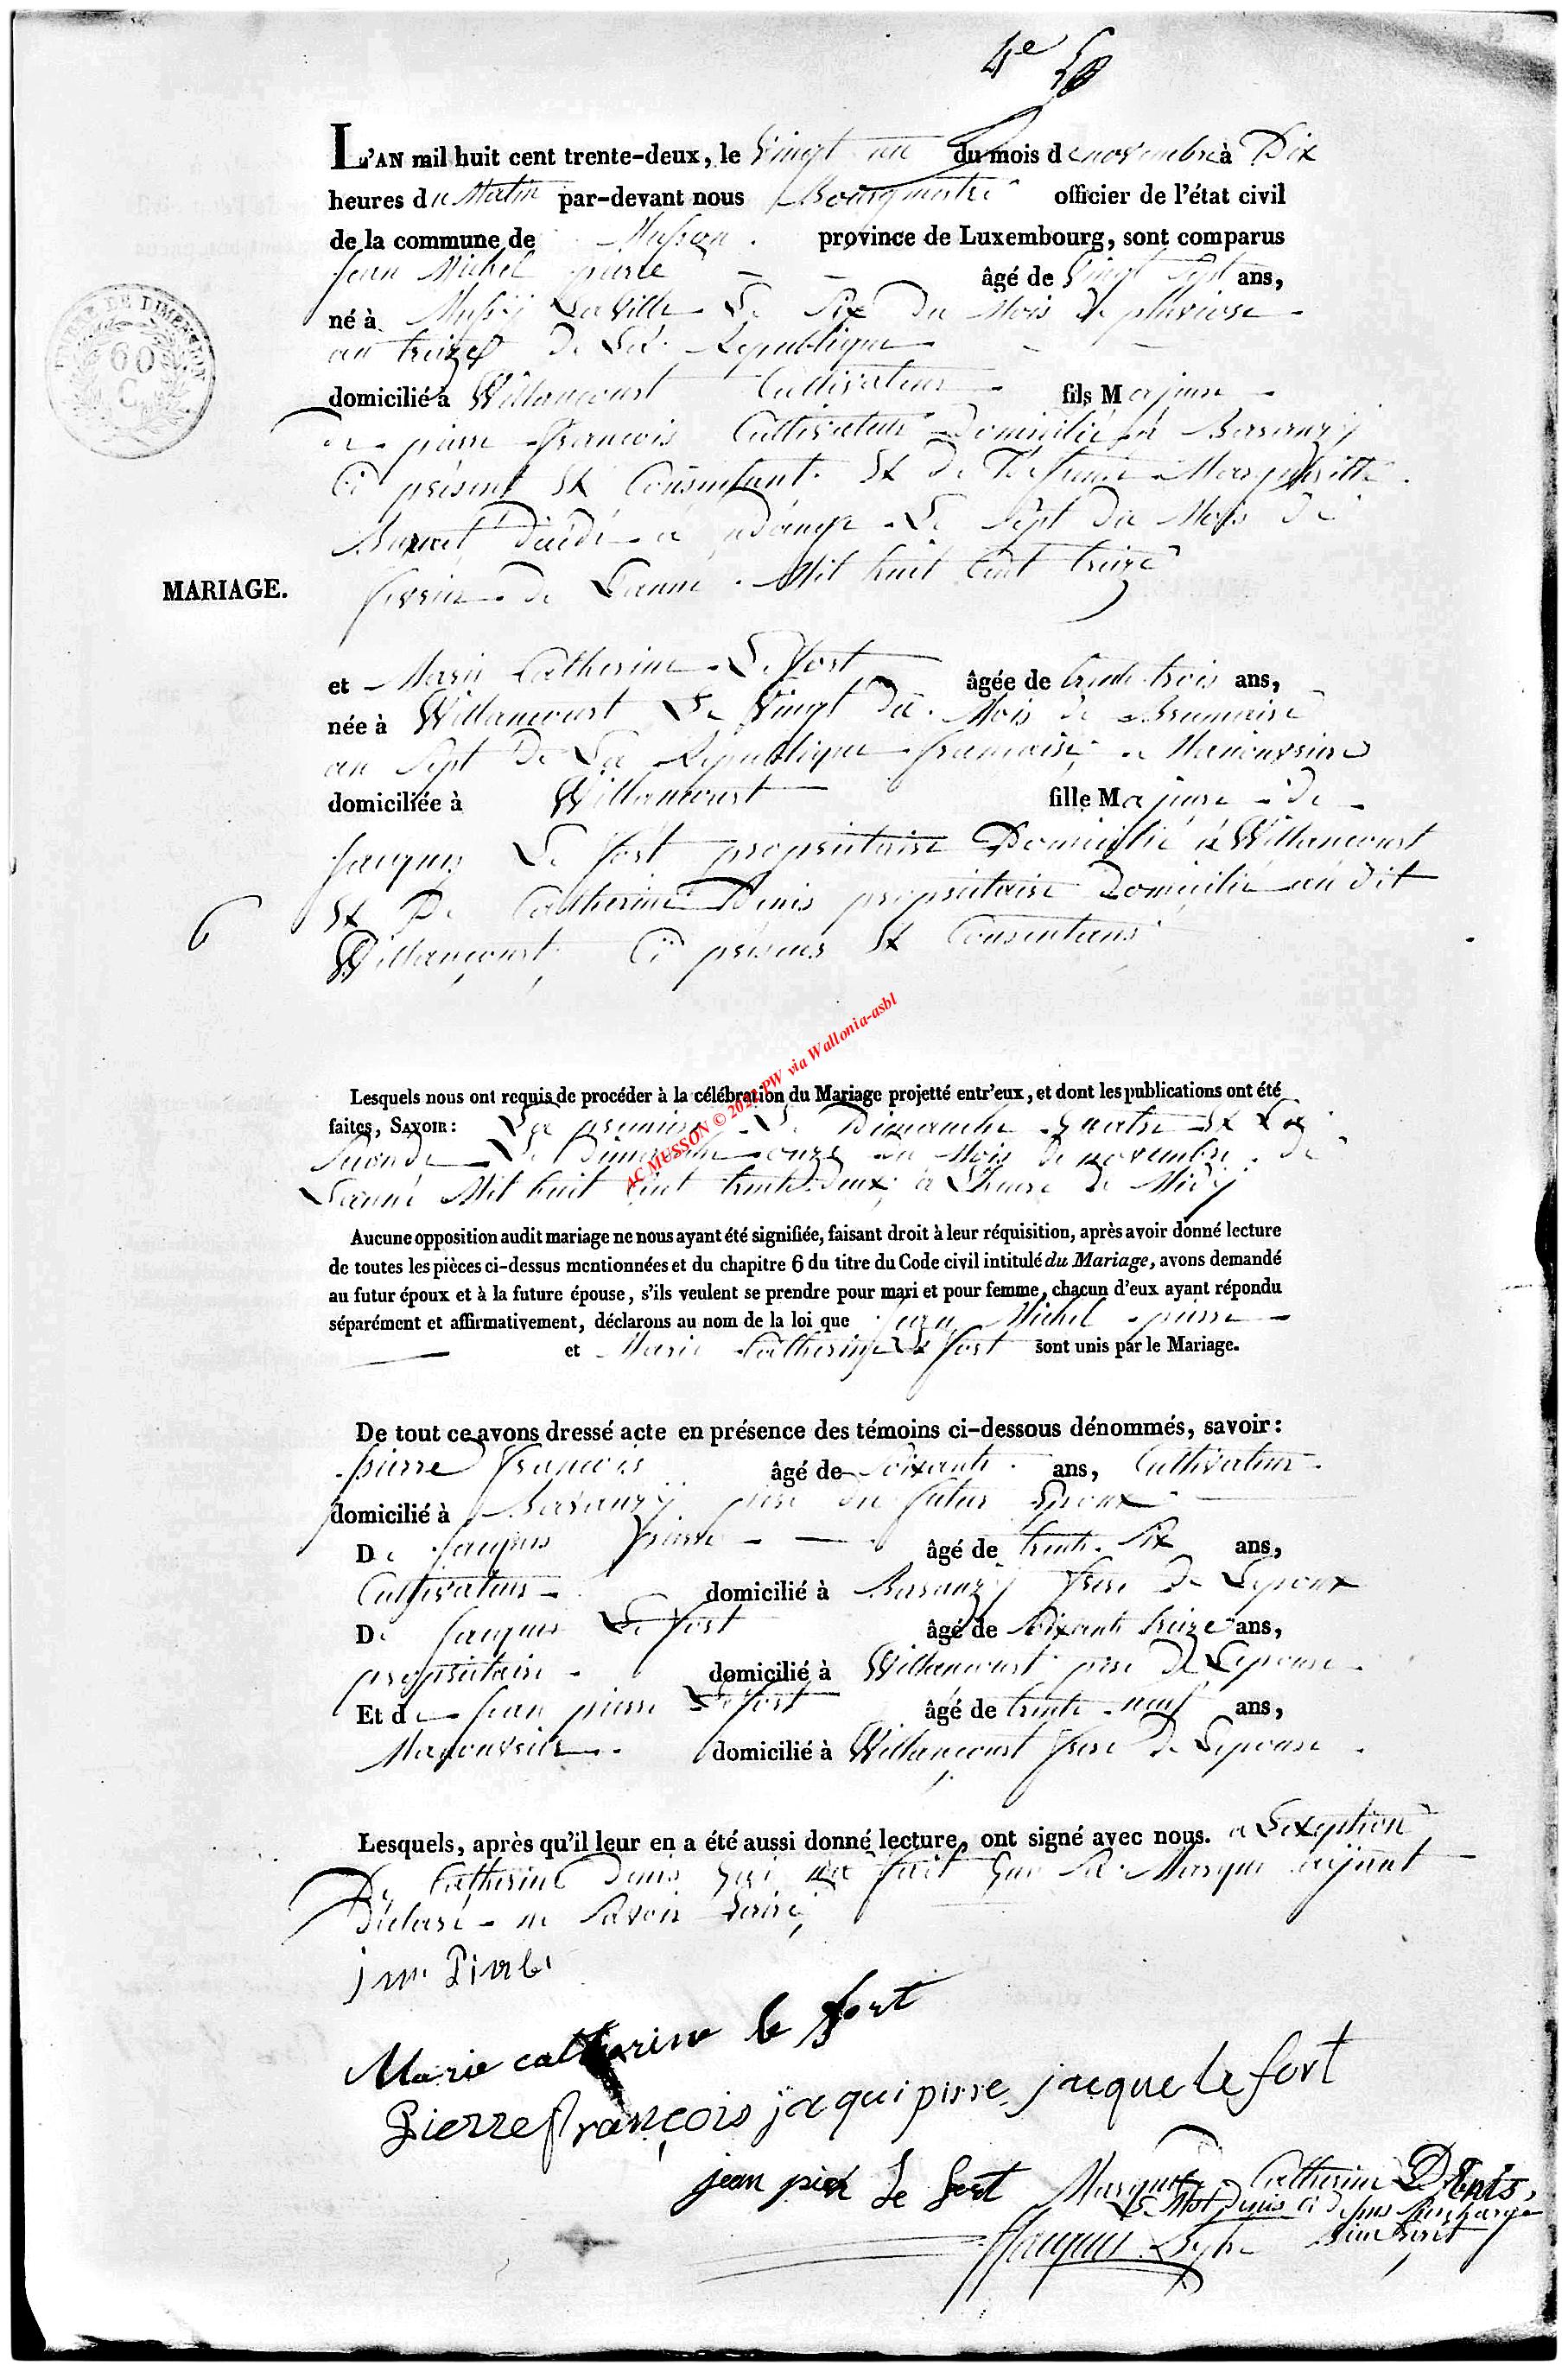 4e
L'AN mil huit cent trente-deux, le Vingt un du mois de novembre à Dix
heures du Matin par-devant nous Bourgmestre officier de l'état civil
de la commune de Musson province de Luxembourg, sont comparus
Jean Michel pierre âgé de Vingt Sept ans,
né à Mussy Laville Le Six du Mois de pluviose
an treize De La Republique
domicilié à Willancourt Cultivateur fils Majeure
de pierre francois Cultivateur Domicilié à Baranzy
Ci présent Et Consentant Et de Défunte Margueritte
décédé à Le Sept du Mois de
fevrier de Lanné Mil huit Cent treize
MARIAGE.
et Marie Catherine Le fort âgée de trente-trois ans,
née à Willancourt Le Vingt du Mois de Brumaire
an Sept De La Republique francaise Manouvriere
domiciliée à Willancourt fille Majeure de
Jacques Le fort propriétaire Domicilié à Willancourt
Et De Catherine Denis propriétaire Domicilié au dit
Willancourt Ci présens Et Consentans
6
Lesquels nous ont requis de procéder à la célébration du Mariage projetté entr'eux, et dont les publications ont été
faites, SAVOIR: La premiere Le Dimanche quatre Et La
Seconde Le Dimanche onze du Mois de novembre de
Lanné Mil huit Cent trente-deux à L'heure de Midy
Aucune opposition audit mariage ne nous ayant été signifiée, faisant droit à leur réquisition, après avoir donné lecture
de toutes les pièces ci-dessus mentionnées et du chapitre 6 du titre du Code civil intitulé du Mariage, avons demandé
au futur époux et à la future épouse, s'ils veulent se prendre pour mari et pour femme, chacun d'eux ayant répondu
séparément et affirmativement, déclarons au nom de la loi que Jean Michel pierre
et Marie Catherine Le fort sont unis par le Mariage.
De tout ce avons dressé acte en présence des témoins ci-dessous dénommés, savoir:
pierre francois âgé de Soixante ans, Cultivateur
domicilié à Baranzy père du futur Epoux
De Jacques pierre âgé de trente-Six ans,
Cultivateur domicilié à Baranzy frere De Lepoux
De Jacques Le fort âgé de Soixante treize ans,
propriétaire domicilié à Willancourt père De Lepouse
Et de Jean pierre Le fort âgé de trente-neuf ans,
Manouvrier domicilié à Willancourt frere De Lepouse
Lesquels, après qu'il leur en a été aussi donné lecture, ont signé avec nous. a Lexeption
De Catherine Denis qui na fait que Sa Marque aijant
Déclaré ne Savoir Ecrire
Marie catherine le fort
Pierre françois jaqui pirre jacque le fort
jean pier le fort Marque Catherine Denis
Le Mot Denis ci Desus Surchargé
AC MUSSON © 2022 PW via Wallonia-asbl